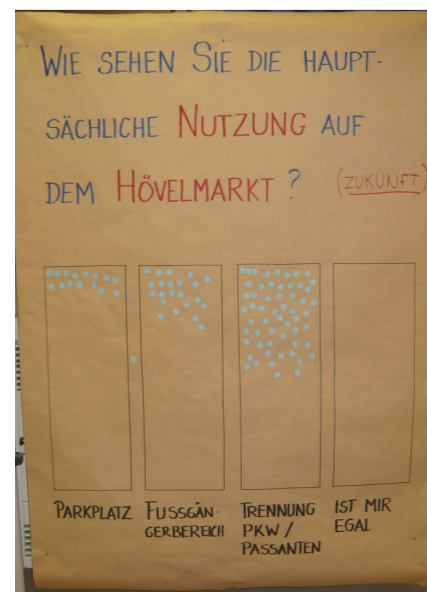 WIE SEHEN SIE DIE HAUPT-
SÄCHLICHE NUTZUNG AUF
DEM HÖVELMARKT? (ZUKUNFT)
PARKPLATZ
FUSSGÄN-
GERBEREICH
TRENNUNG
PKW /
PASSANTEN
IST MIR
EGAL